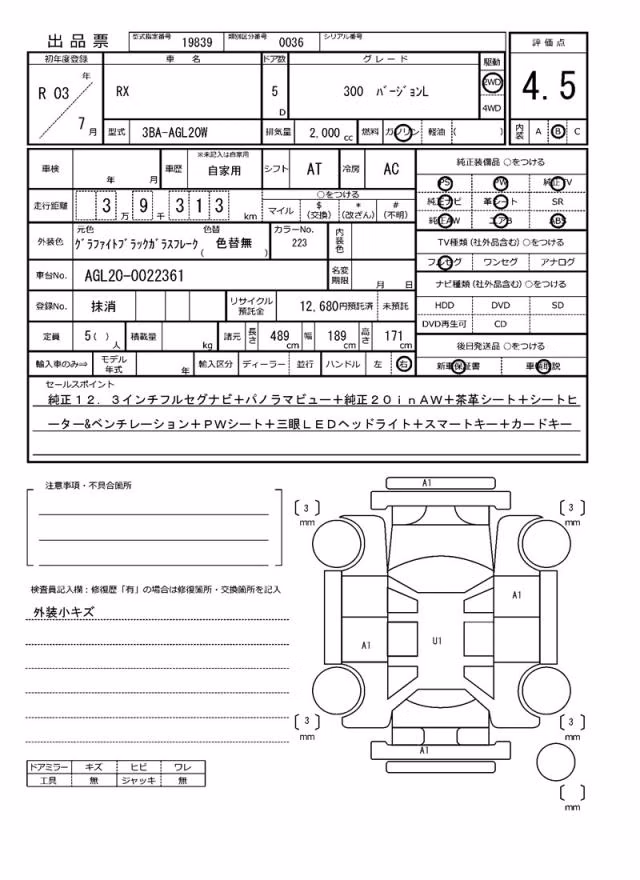 出品票 型式指定番号 19839 類別区分番号 0036 シリアル番号
評価点
4.5
内装 A B C
初年度登録 車名 ドア数 グレード 駆動
R 03 年 7 月
RX 5 D 300 バージョンL 2WD 4WD
型式 3BA-AGL20W 排気量 2,000 cc 燃料 ガソリン 軽油 ( )
車検 年 月 車歴 ※未記入は自家用 自家用 シフト AT 冷房 AC
走行距離 3 万 9 千 3 1 3 km
○をつける
マイル $ (交換) * (改ざん) # (不明)
外装色 元色 グラファイトブラックガラスフレーク 色替 ( 色替無 ) カラーNo. 223 内装色
車台No. AGL20-0022361 名変期限 月 日
登録No. 抹消 リサイクル預託金 12,680円預託済 未預託
定員 5( ) 人 積載量 kg 諸元 長さ 489 cm 幅 189 cm 高さ 171 cm
輸入車のみ⇒ モデル年式 年 輸入区分 ディーラー 並行 ハンドル 左 右
純正装備品 ○をつける
PS PW 純正TV
純正ナビ 革シート SR
純正AW エアB ABS
TV種類(社外品含む) ○をつける
フルセグ ワンセグ アナログ
ナビ種類(社外品含む) ○をつける
HDD DVD SD
DVD再生可 CD
後日発送品 ○をつける
新車保証書 車輌取説
セールスポイント
純正12．3インチフルセグナビ+パノラマビュー+純正20inAW+茶革シート+シートヒ
ーター&ベンチレーション+PWシート+三眼LEDヘッドライト+スマートキー+カードキー
注意事項・不具合箇所
検査員記入欄：修復歴「有」の場合は修復箇所・交換箇所を記入
外装小キズ
ドアミラー キズ ヒビ ワレ
工具 無 ジャッキ 無
A1
3 mm
3 mm
A1
A1
U1
3 mm
3 mm
A1
mm